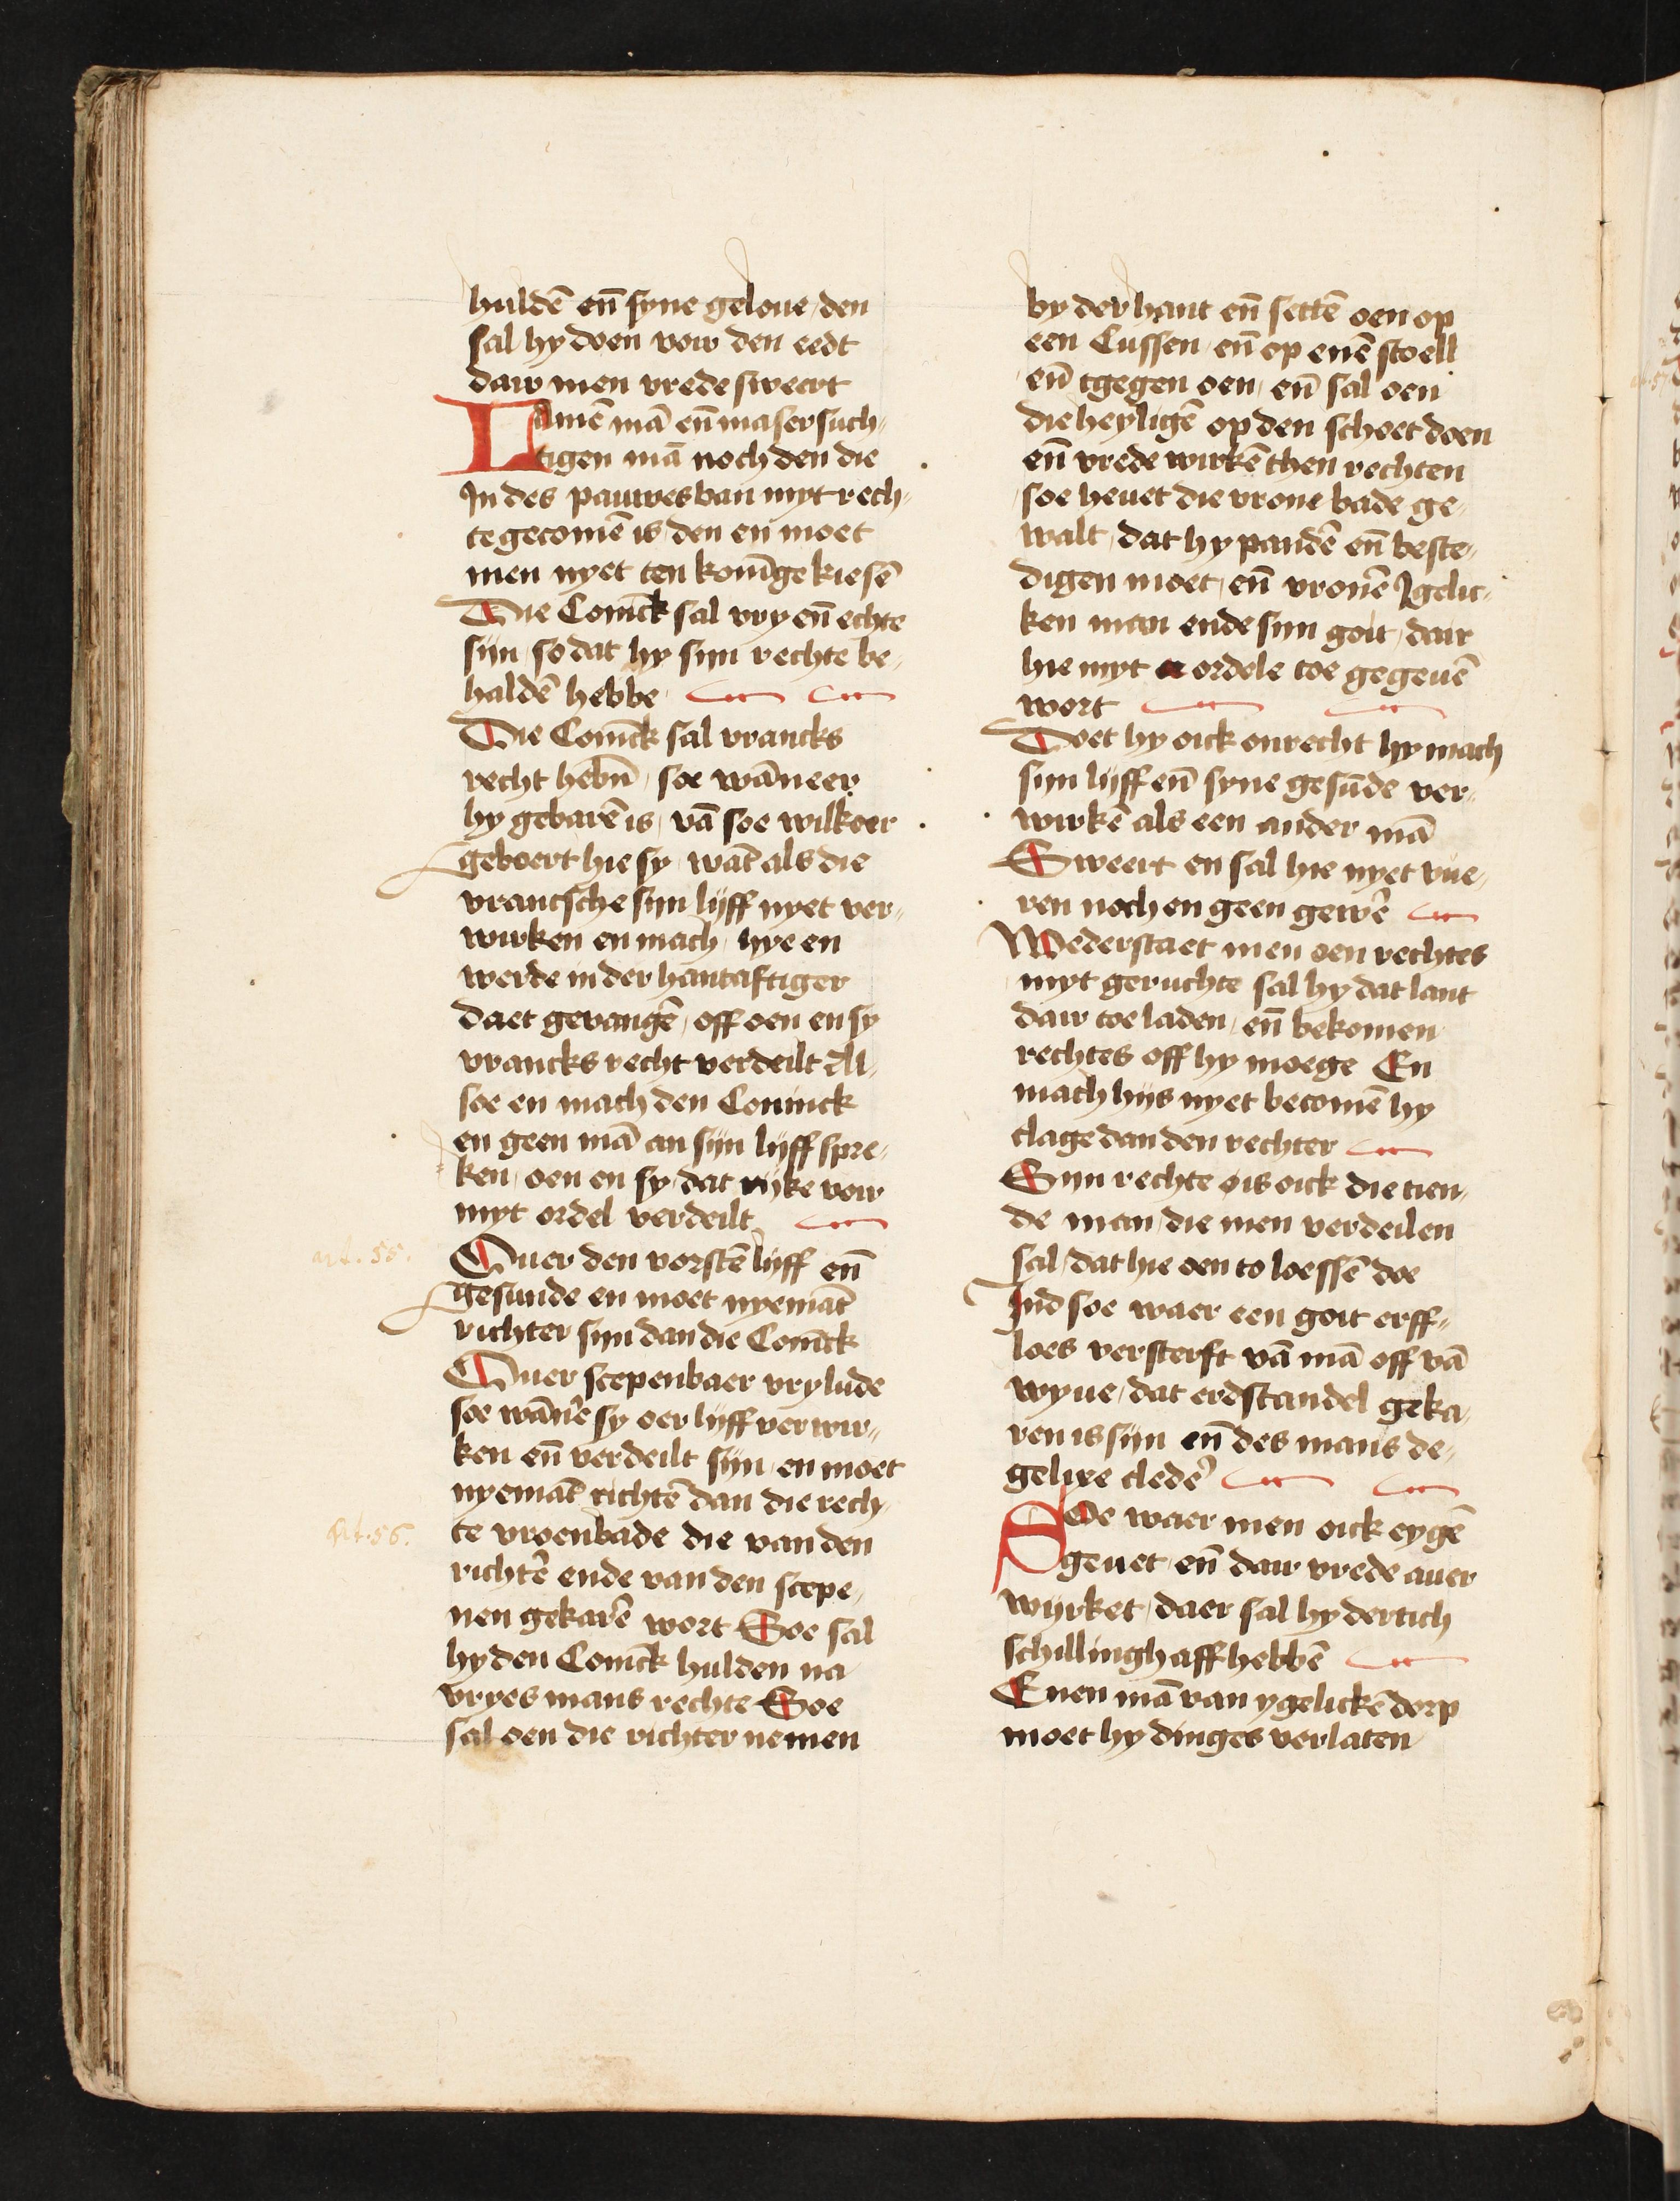 huldē en̄ syne geloue / den
sal hy doen voir den eedt
dair men vrede sweert
Lamē mā en̄ maser such„
tigen mā noch den die
In des pauwes ban myt rech„
te gecomē is / den en moet
men nyet ten konīge kiesē
Die Conīck sal vry en̄ echte
sijn / so dat hy sijn rechte be„
haldē hebbe
Die Conīck sal vrancks
recht hebn̄ / soe wāneer
hy gebarē is / vā soe wilkoer
geboert hie sy / wāt als die
vrancsche sijn lijff nyet ver„
wirken en mach / hye en
werde in der hantaftiger
daet gevangē / off oen en sy
vrancks recht verdeilt Al„
soe en mach den Coninck
en geen mā an sijn lijff spre„
ken / oen en sy / dat rijke voir
myt ordel verdeilt
art. 55.
Ouer den vorstē lijff en̄
gesunde en moet nyemāt
richter sijn dan die Conīck
Ouer scepenbaer vrylude
soe wānēe sy oer lijff verwir„
ken en̄ verdeilt sijn / en moet
nyemāt richtē dan die rech„
Art. 56.
te vroenbade die van den
richtē ende van den scepe„
nen gekarē wort Soe sal
hy den Conīck hulden na
vryes mans rechte Soe
sal oen die richter nemen
by der hant en̄ settē oen op
een Cussen / en̄ op enē stoell
en̄ tgegen oen / en̄ sal oen
die heyligē op den schoet doen
en̄ vrede wirkē then rechten
soe heuet die vrone bade ge„
walt / dat hy pandē en̄ beste„
digen moet / en̄ vronē Igelic„
ken man ende sijn goit / dair
hie myt ordele toe gegeuē
wort
Doet hy oick onrecht hy mach
sijn lijff en̄ syne gesūde ver„
wirkē als een ander mā
Sweert en sal hie nyet vue„
ren noch en geen gewē
Wederstaet men oen rechtes
myt geruchte sal hy dat lant
dair toe laden / en̄ bekomen
rechtes off hy moege En
mach hijs nyet becomē hy
clage dan den rechter
Sijn rechte is oick die tien„
de man / die men verdeilen
sal / dat hie oen to loessē doe
Ind soe waer een goit erff„
loes versterft vā mā off vā
wyue / dat erdstandel geka„
ren is sijn en̄ des mans de„
gelixe cledē
Soe waer men oick eygē
geuet en̄ dair vrede auer
wijrket / daer sal hy dertich
schillingh aff hebbē
Enen mā van ygelickē dorp
moet hy dinges verlaten